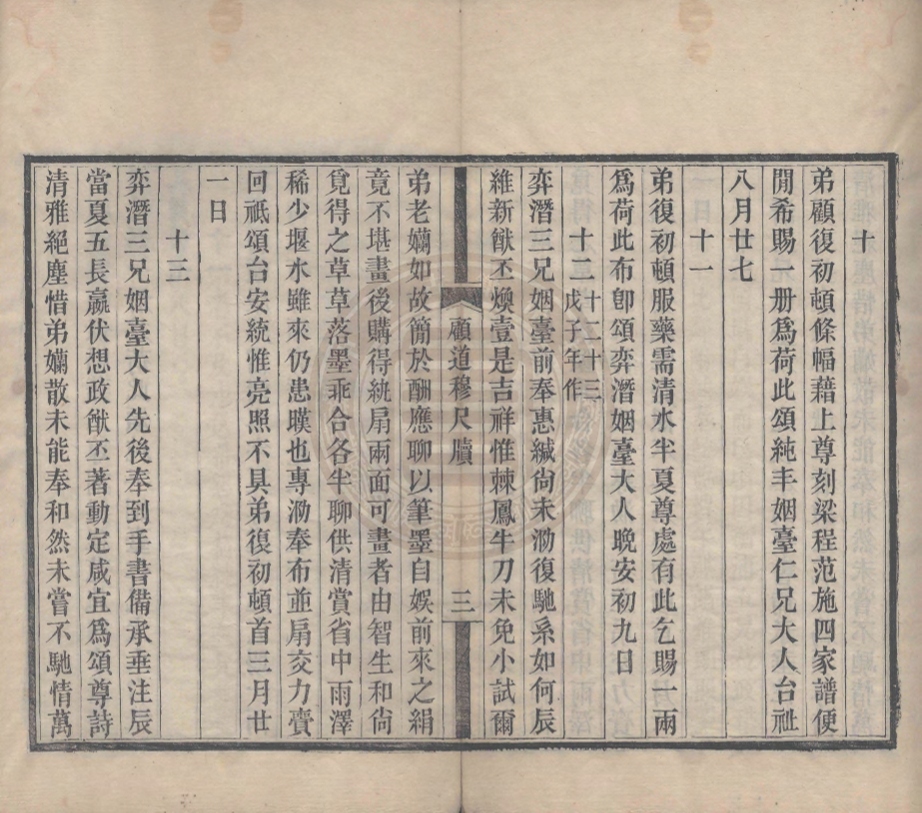 十
弟顧復初頓條幅藉上尊刻梁程范施四家譜便
閒希賜一册爲荷此頌純丰姻臺仁兄大人台祉
八月廿七
十一
弟復初頓服藥需清水半夏尊處有此乞賜一兩
爲荷此布卽頌弈潛姻臺大人晚安初九日
十二十二十三戊子年作
弈潛三兄姻臺前奉惠緘尙未泐復馳系如何辰
維新猷丕煥壹是吉祥惟棘鳳牛刀未免小試爾
顧道穆尺牘
三
弟老嬾如故簡於酬應聊以筆墨自娛前來之絹
竟不堪畫後購得紈扇兩面可畫者由智生和尙
覓得之草草落墨乖合各半聊供清賞省中雨澤
稀少堰水雖來仍患暵也專泐奉布並扇交力賫
回祇頌台安統惟亮照不具弟復初頓首三月廿
一日
十三
弈潛三兄姻臺大人先後奉到手書備承垂注辰
當夏五長嬴伏想政猷丕著動定咸宜爲頌尊詩
清雅絕塵惜弟嬾散未能奉和然未嘗不馳情萬